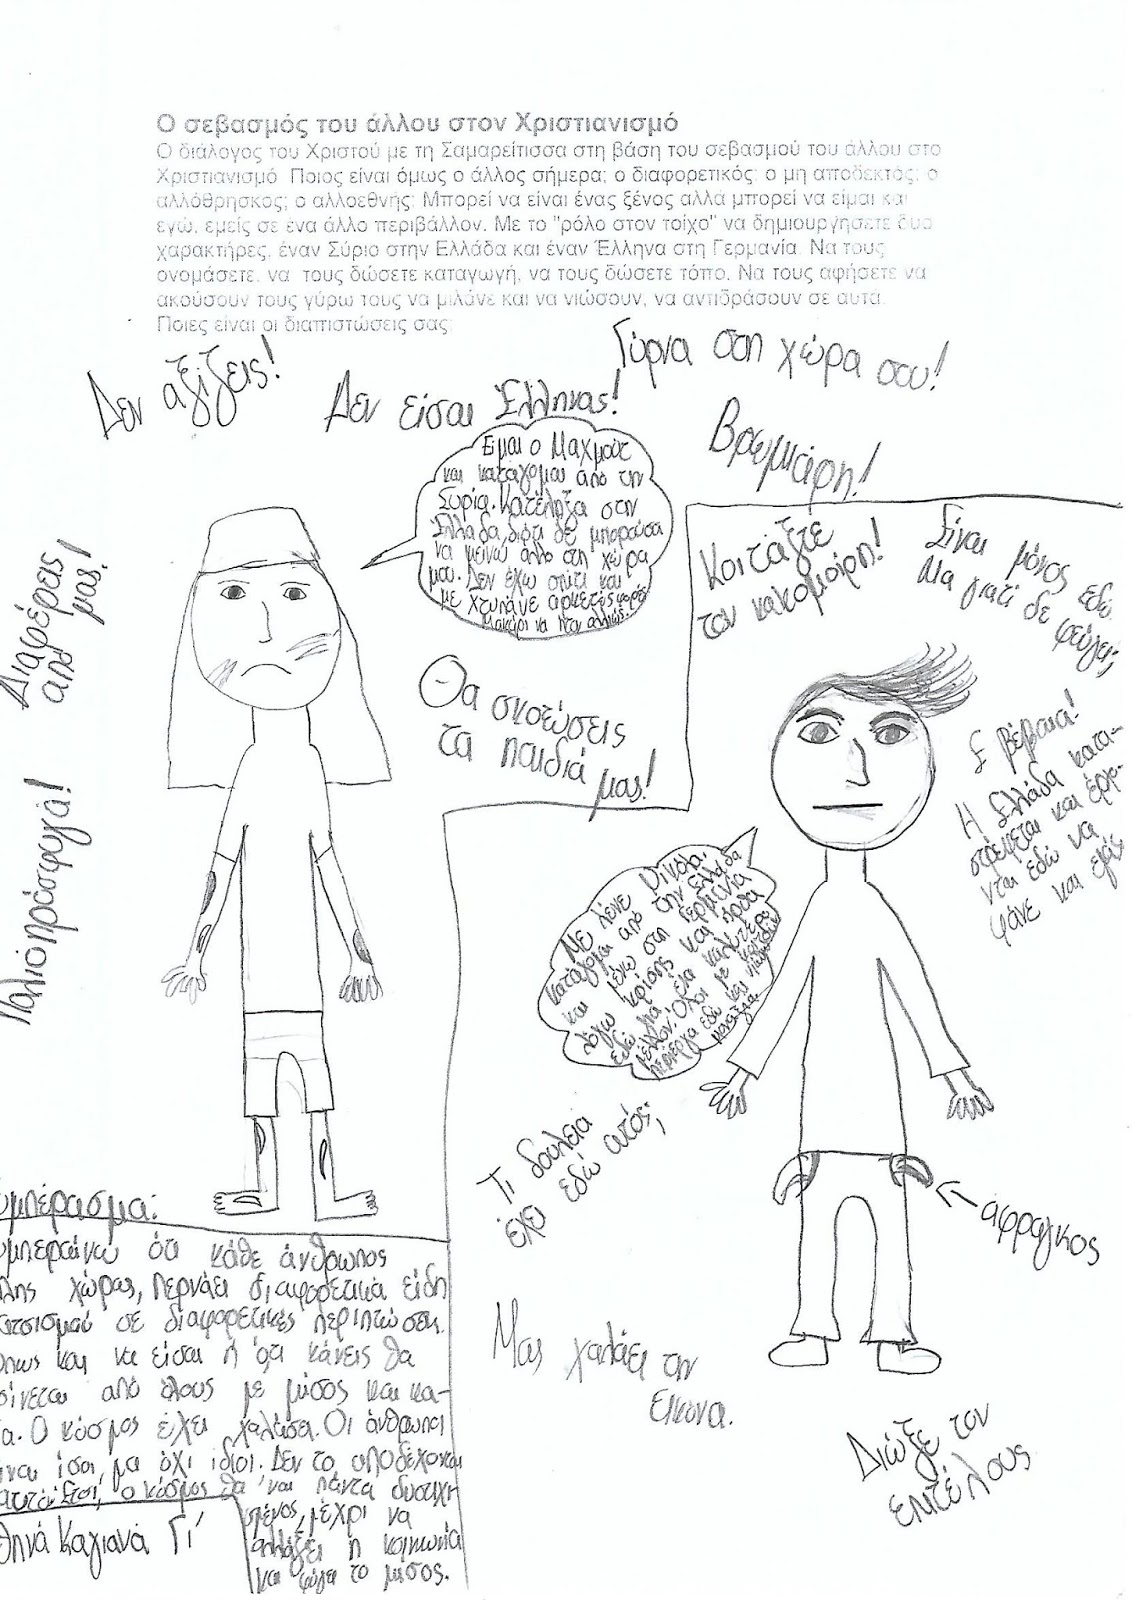 Ο σεβασμός του άλλου στον Χριστιανισμό
Ο διάλογος του Χριστού με τη Σαμαρείτισσα στη βάση του σεβασμού του άλλου στο
Χριστιανισμό. Ποιος είναι όμως ο άλλος σήμερα; ο διαφορετικός; ο μη αποδεκτός; ο
αλλόθρησκος; ο αλλοεθνής; Μπορεί να είναι ένας ξένος αλλά μπορεί να είμαι και
εγώ, εμείς σε ένα άλλο περιβάλλον. Με το "ρόλο στον τοίχο" να δημιουργήσετε δυο
χαρακτήρες, έναν Σύριο στην Ελλάδα και έναν Έλληνα στη Γερμανία. Να τους
ονομάσετε, να τους δώσετε καταγωγή, να τους δώσετε τόπο. Να τους αφήσετε να
ακούσουν τους γύρω τους να μιλάνε και να νιώσουν, να αντιδράσουν σε αυτα.
Ποιες είναι οι διαπιστώσεις σας;
Δεν αξίζεις!
Δεν είσαι Έλληνας!
Γύρνα στη χώρα σου!
Βρωμιάρη!
Είμαι ο Μαχμούτ
και κατάγομαι από την
Συρία. Κατέληξα στην
Ελλάδα, διότι δε μπορούσα
να μείνω άλλο στη χώρα
μου. Δεν έχω σπίτι και
με χτυπάνε αρκετές φορές
Μακάρι να ήταν αλλιώς.
Διαφέρεις
από μας!
Παλιοπρόσφυγα!
Θα σκοτώσεις
τα παιδιά μας!
Κοιτάξτε
τον κακομοίρη!
Είναι μόνος εδώ.
Μα γιατί δε φεύγει;
Ε βέβαια!
Η Ελλάδα κατα-
στρέφεται και έρχο-
νται εδώ να
φάνε και εμάς
Με λένε Νικόλα,
κατάγομαι από την Ελλάδα
και μένω στη Γερμανία
λόγω κρίσης και ήρθα
εδώ για ένα καλύτερο
μέλλον. Όλοι με κοιτούν
περίεργα εδώ και
Τι δουλειά
έχει εδώ αυτός;
άφραγκος
Μας χαλάει την
εικόνα.
Διώξε τον
επιτέλους
υμπέρασμα:
υμπεραίνω ότι κάθε άνθρωπος
λλης χώρας, περνάει διαφορετικά είδη
ατσισμού σε διαφορετικές περιπτώσεις.
πως και να είσαι ή ότι κάνεις θα
ρίνεται από όλους με μίσος και κα-
α. Ο κόσμος έχει χαλάσει. Οι άνθρωποι
ίναι ίσοι, μα όχι ίδιοι. Δεν το αποδέχονται
αυτό. Έτσι, ο κόσμος θα 'ναι πάντα δυστυχι
σμένος, μέχρι να
αλλάξει η κοινωνία
και φύγει το μίσος.
θηνά Καγιανά Γ1'